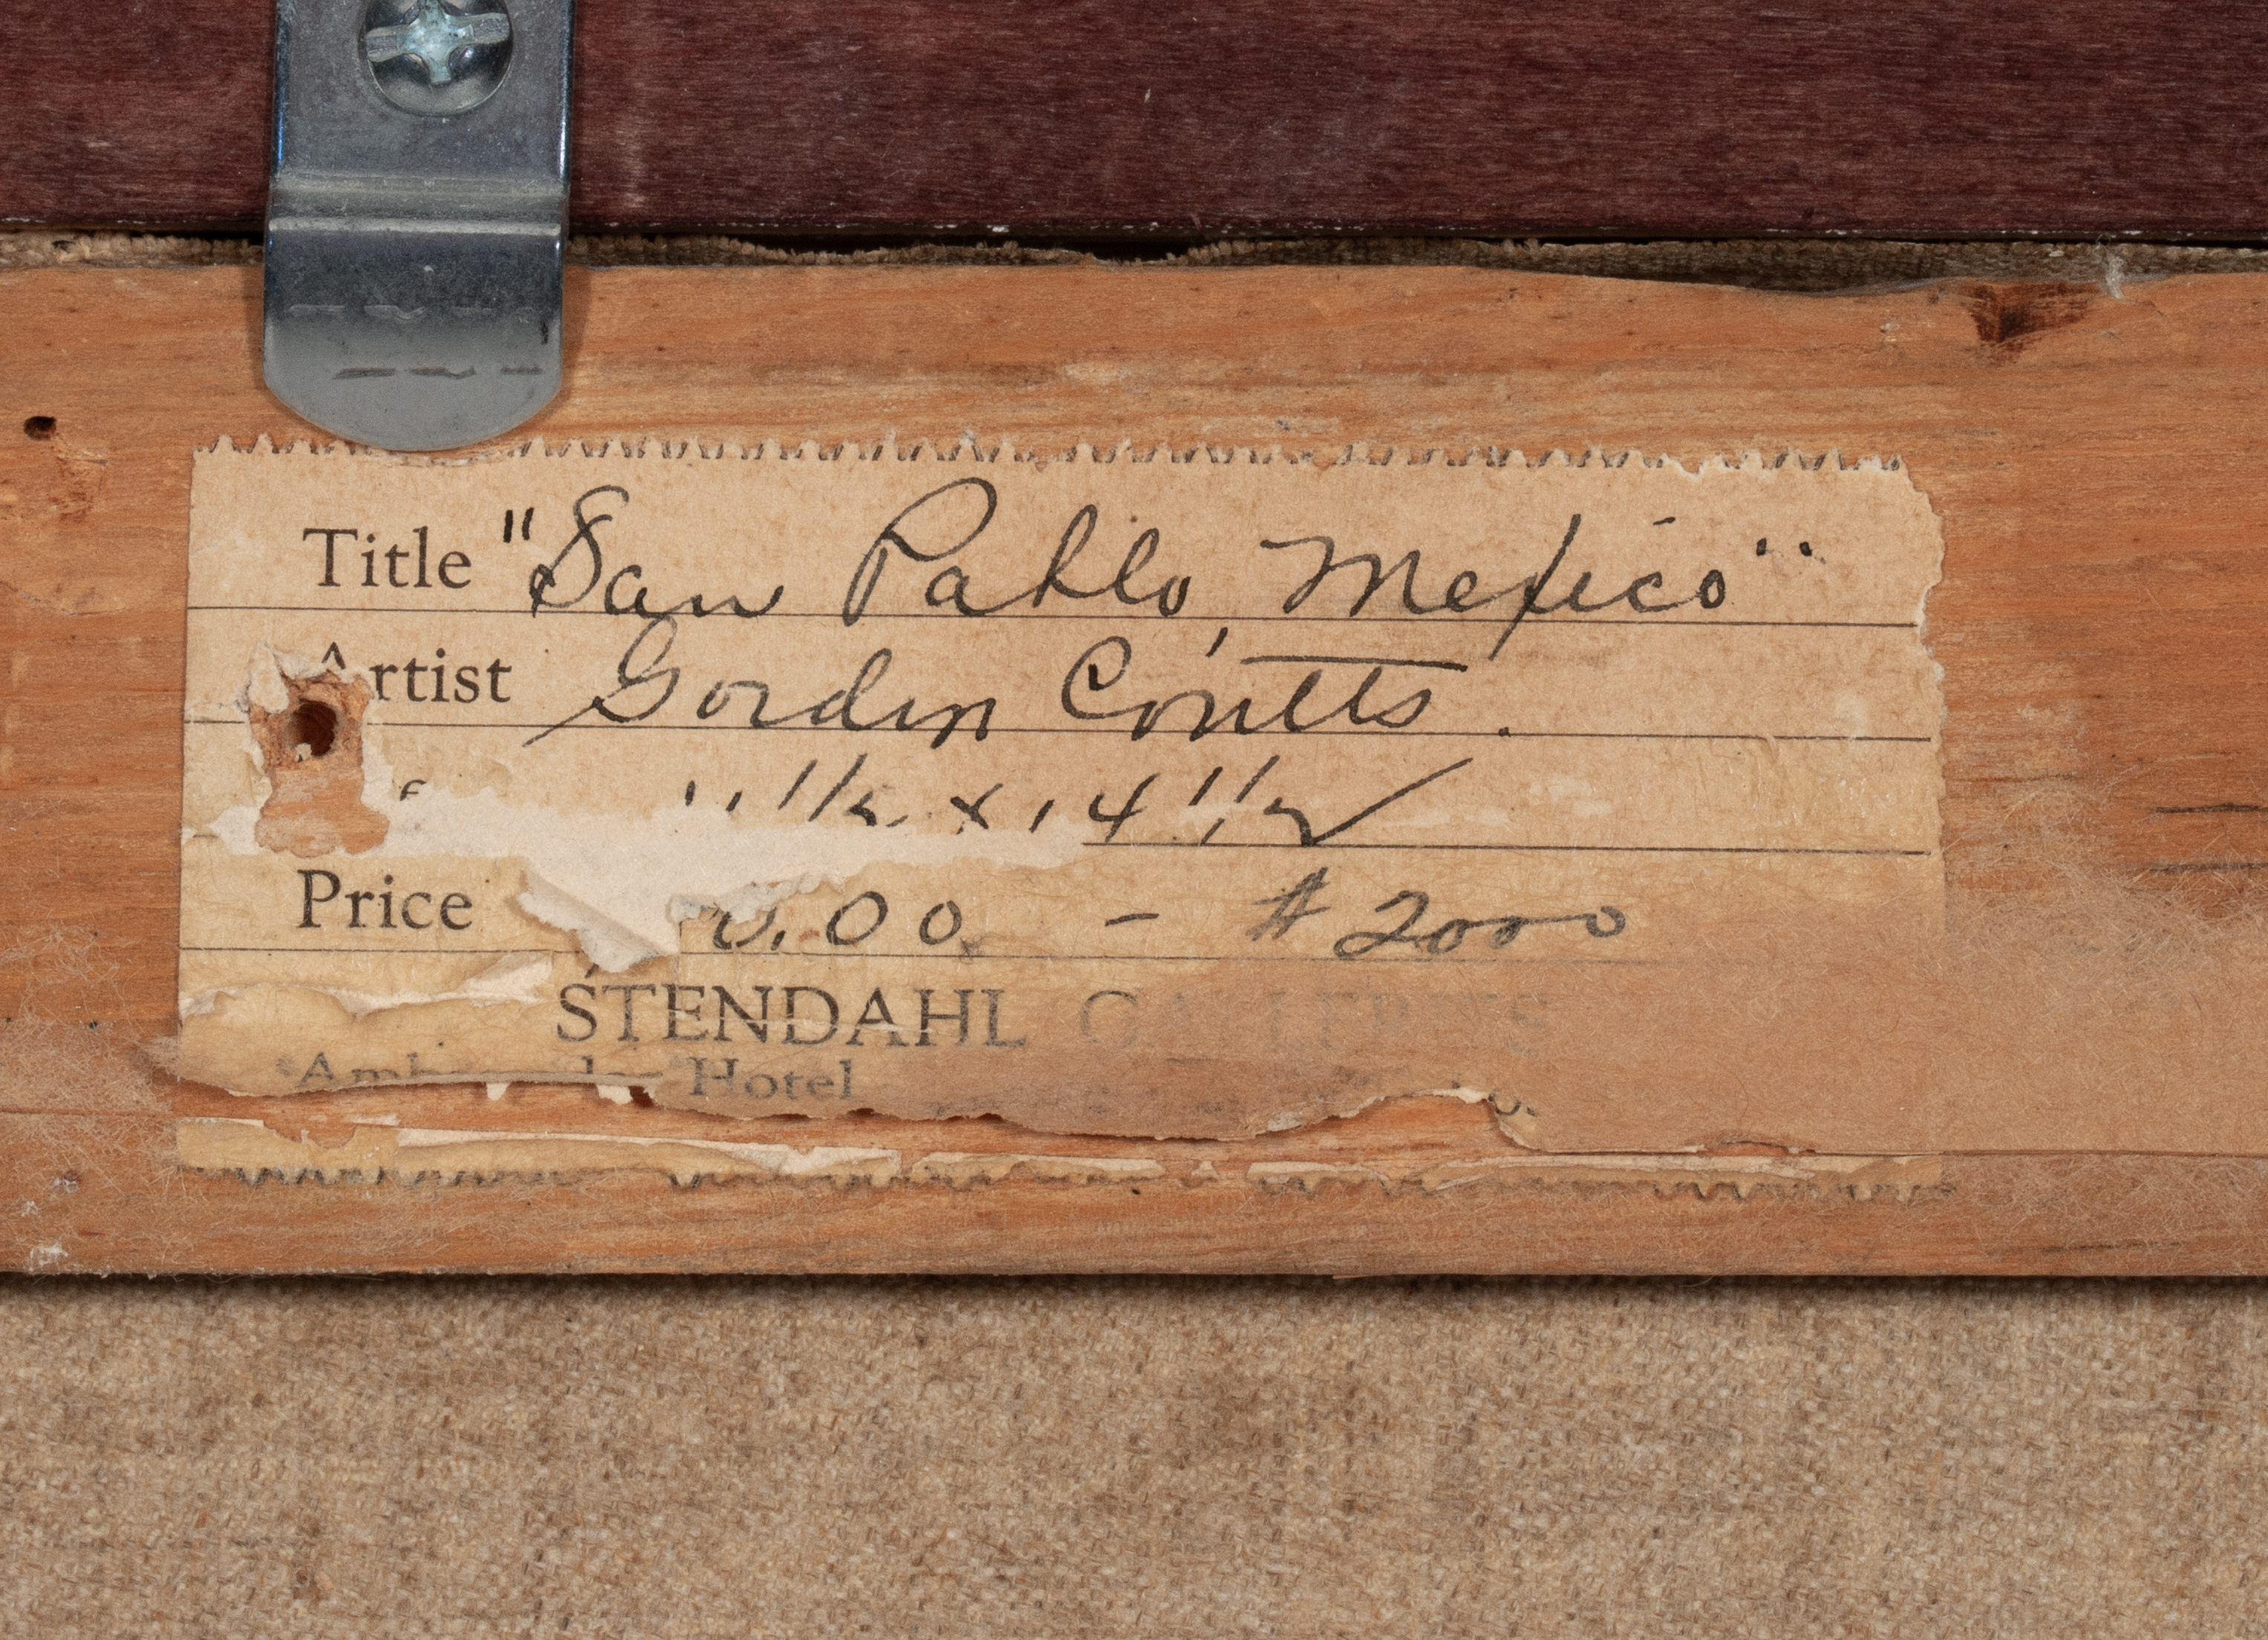 Title "San Pablo, Mexico"
Artist Gordon Coutts.
11 1/2 x 14 1/2
Price 0.00 - $2000
STENDAHL GALLERIES
Ambassador Hotel